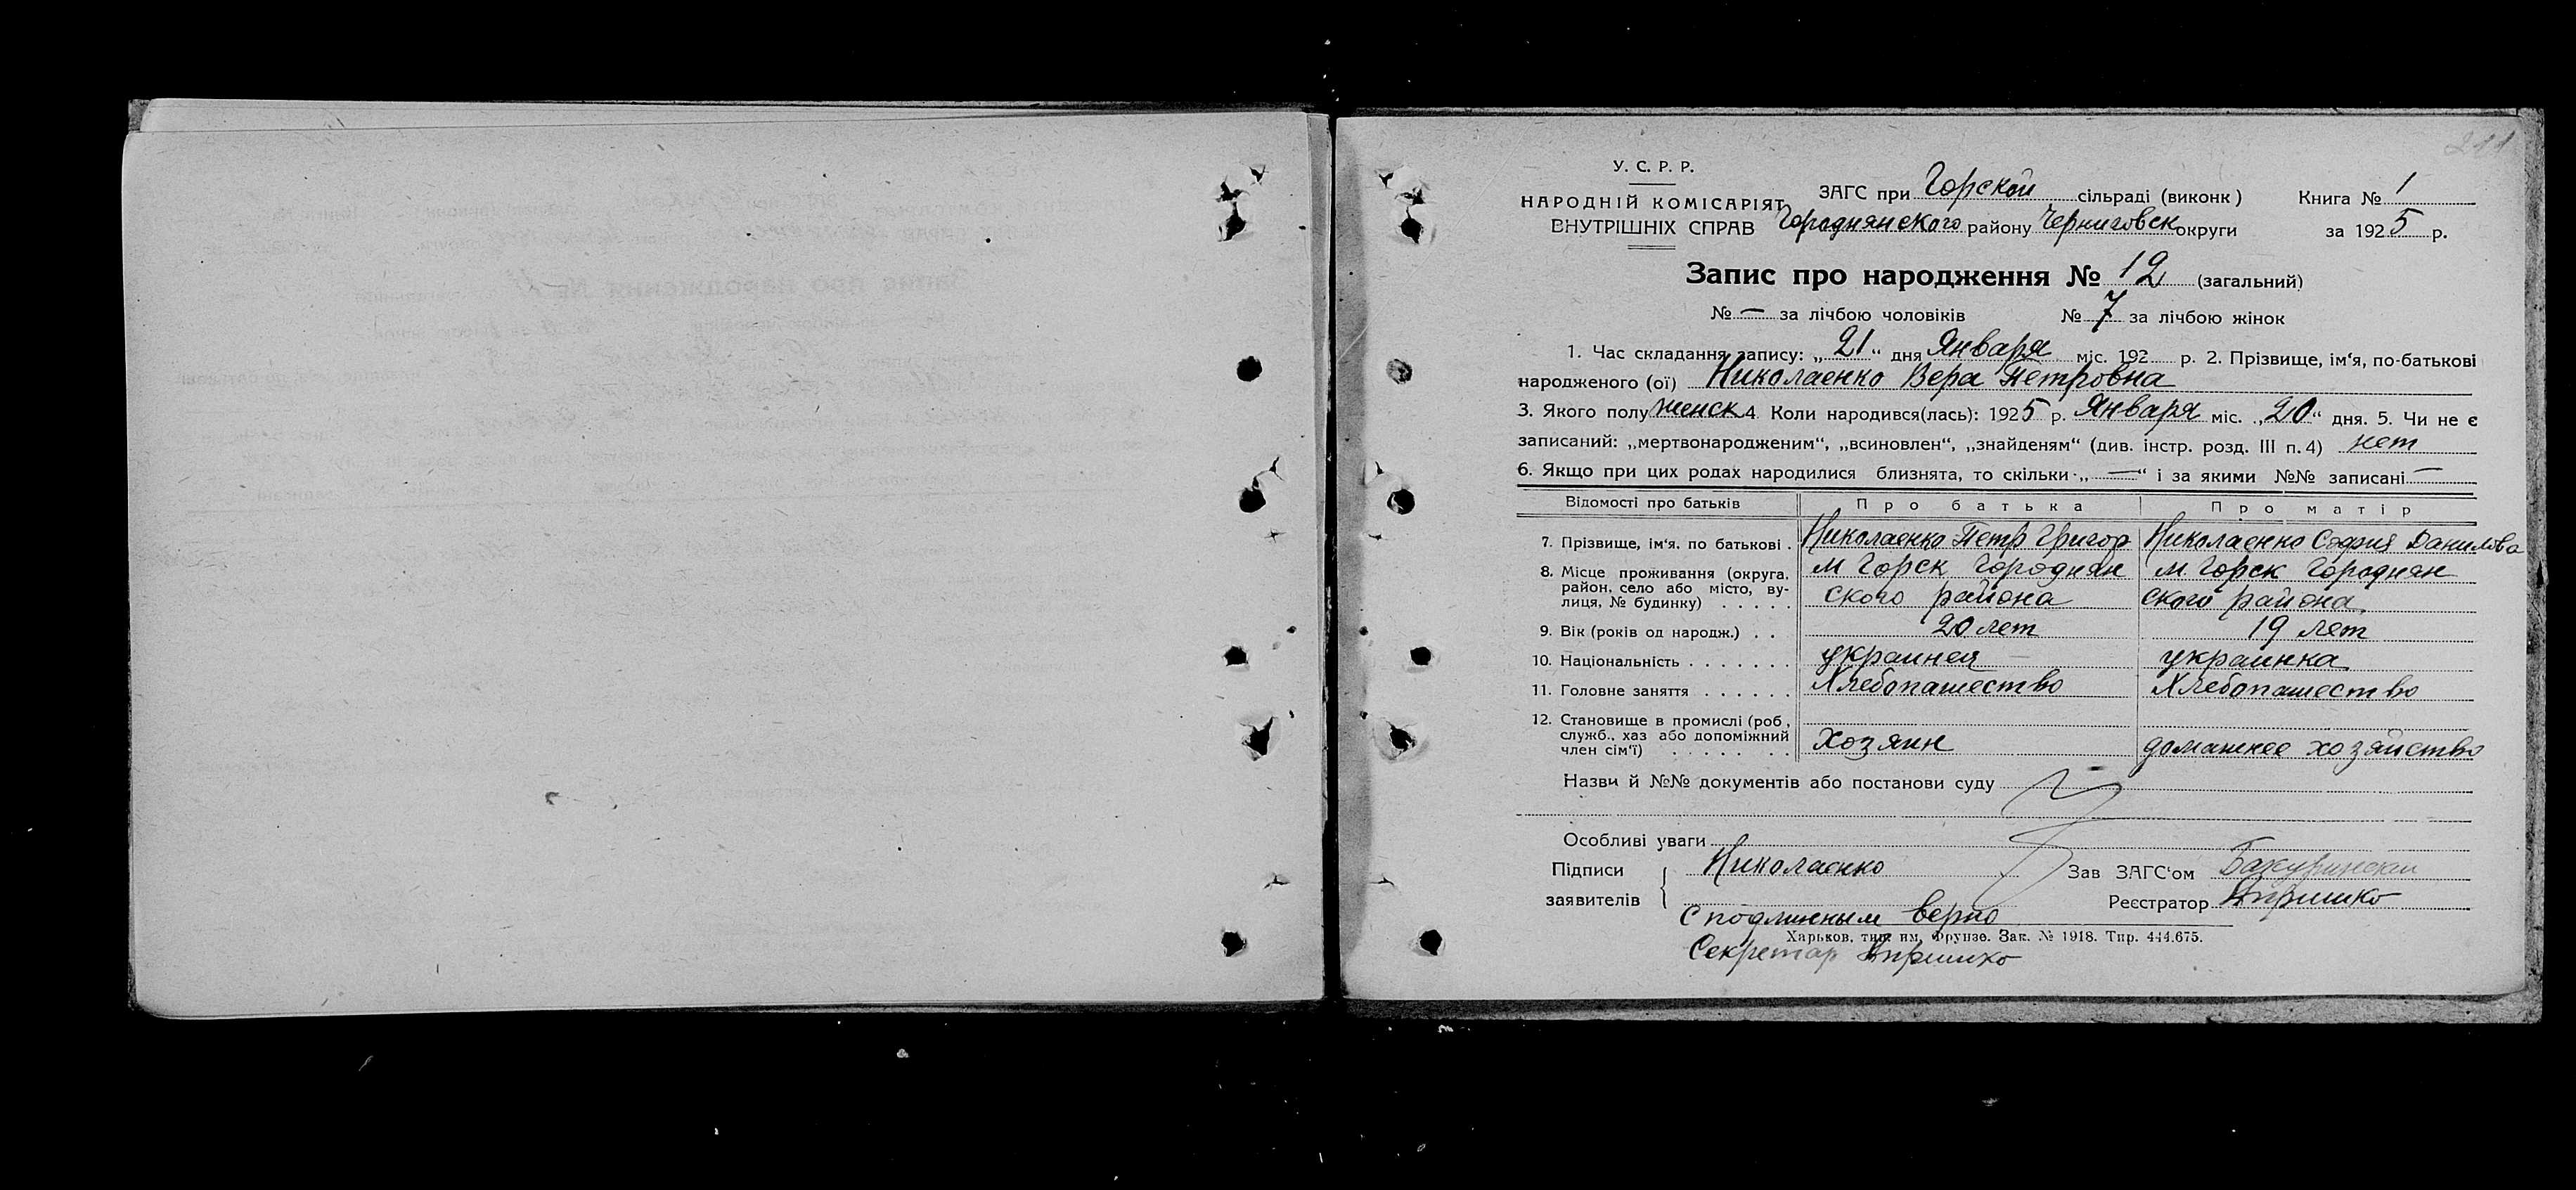 211
У. С. Р. Р.
НАРОДНІЙ КОМІСАРІЯТ
ВНУТРІШНІХ СПРАВ
ЗАГС при Горской сільраді (виконк)
Городнянского району Черниговск округи
Книга № 1
за 1925 р.
Запис про народження № 12 (загальний)
№ — за лічбою чоловіків № 7 за лічбою жінок
1. Час складання запису: „21“ дня Января міс. 192 р. 2. Прізвище, ім‘я, по-батькові
народженого (ої) Николаенко Вера Петровна
3. Якого полу женск 4. Коли народився(лась): 1925 р. Января міс. „20“ дня. 5. Чи не є
записаний: „мертвонародженим“, „всиновлен“, „знайденям“ (див. інстр. розд. III п. 4) нет
6. Якщо при цих родах народилися близнята, то скільки „—“ і за якими №№ записані —
Відомості про батьків Про батька Про матір
7. Прізвище, ім‘я, по батькові . Николаенко Петр Григор Николаенко София Данилова
8. Місце проживання (округа, район, село або місто, вулиця, № будинку) . . . . . м Горск Городнян м. Горск Городнян
ского района ского района
9. Вік (років од народж.) . . 20 лет 19 лет
10. Національність . . . . . . . украинец украинка
11. Головне заняття . . . . . . Хлебопашество Хлебопашество
12. Становище в промислі (роб, служб., хаз або допоміжний член сім‘ї) . . . . . . . хозяин домашнее хозяйство
Назви й №№ документів або постанови суду
Особливі уваги
Підписи
заявителів
Николаенко
Зав ЗАГС‘ом
Реєстратор
С подлинным верно
Харьков, тип. им. Фрунзе. Зак. № 1918. Тир. 444.675.
Секретар